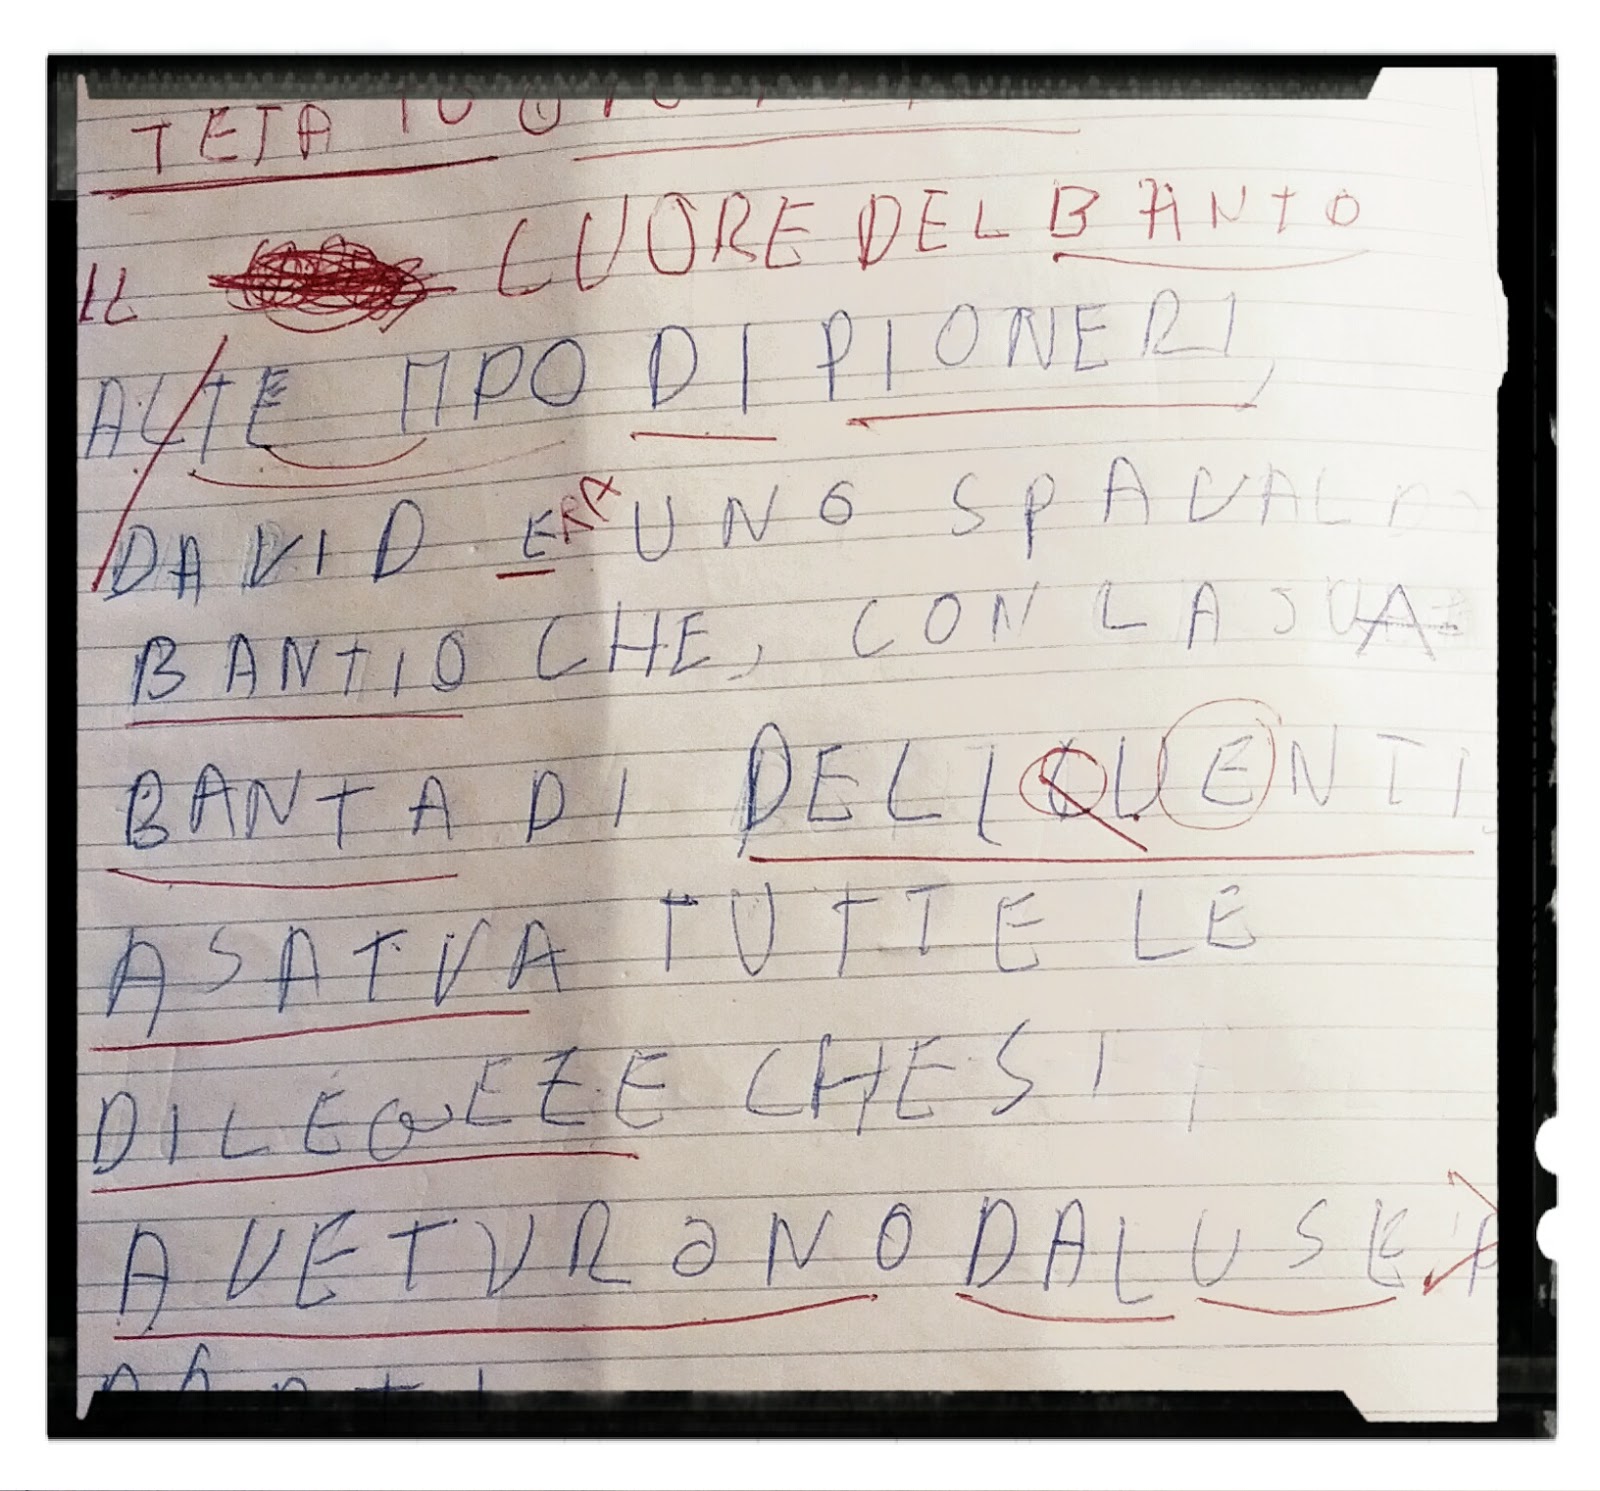 TETA
IL CUORE DEL BANTO
AL TEMPO DI PIONERI,
DAVID ERA UNO SPAVALDO
BANTIO CHE, CON LA SUA
BANTA DI DELIQUENTI
ASATVA TUTTE LE
DILEGEZE CHE SI
AVETVRONO DAL USE